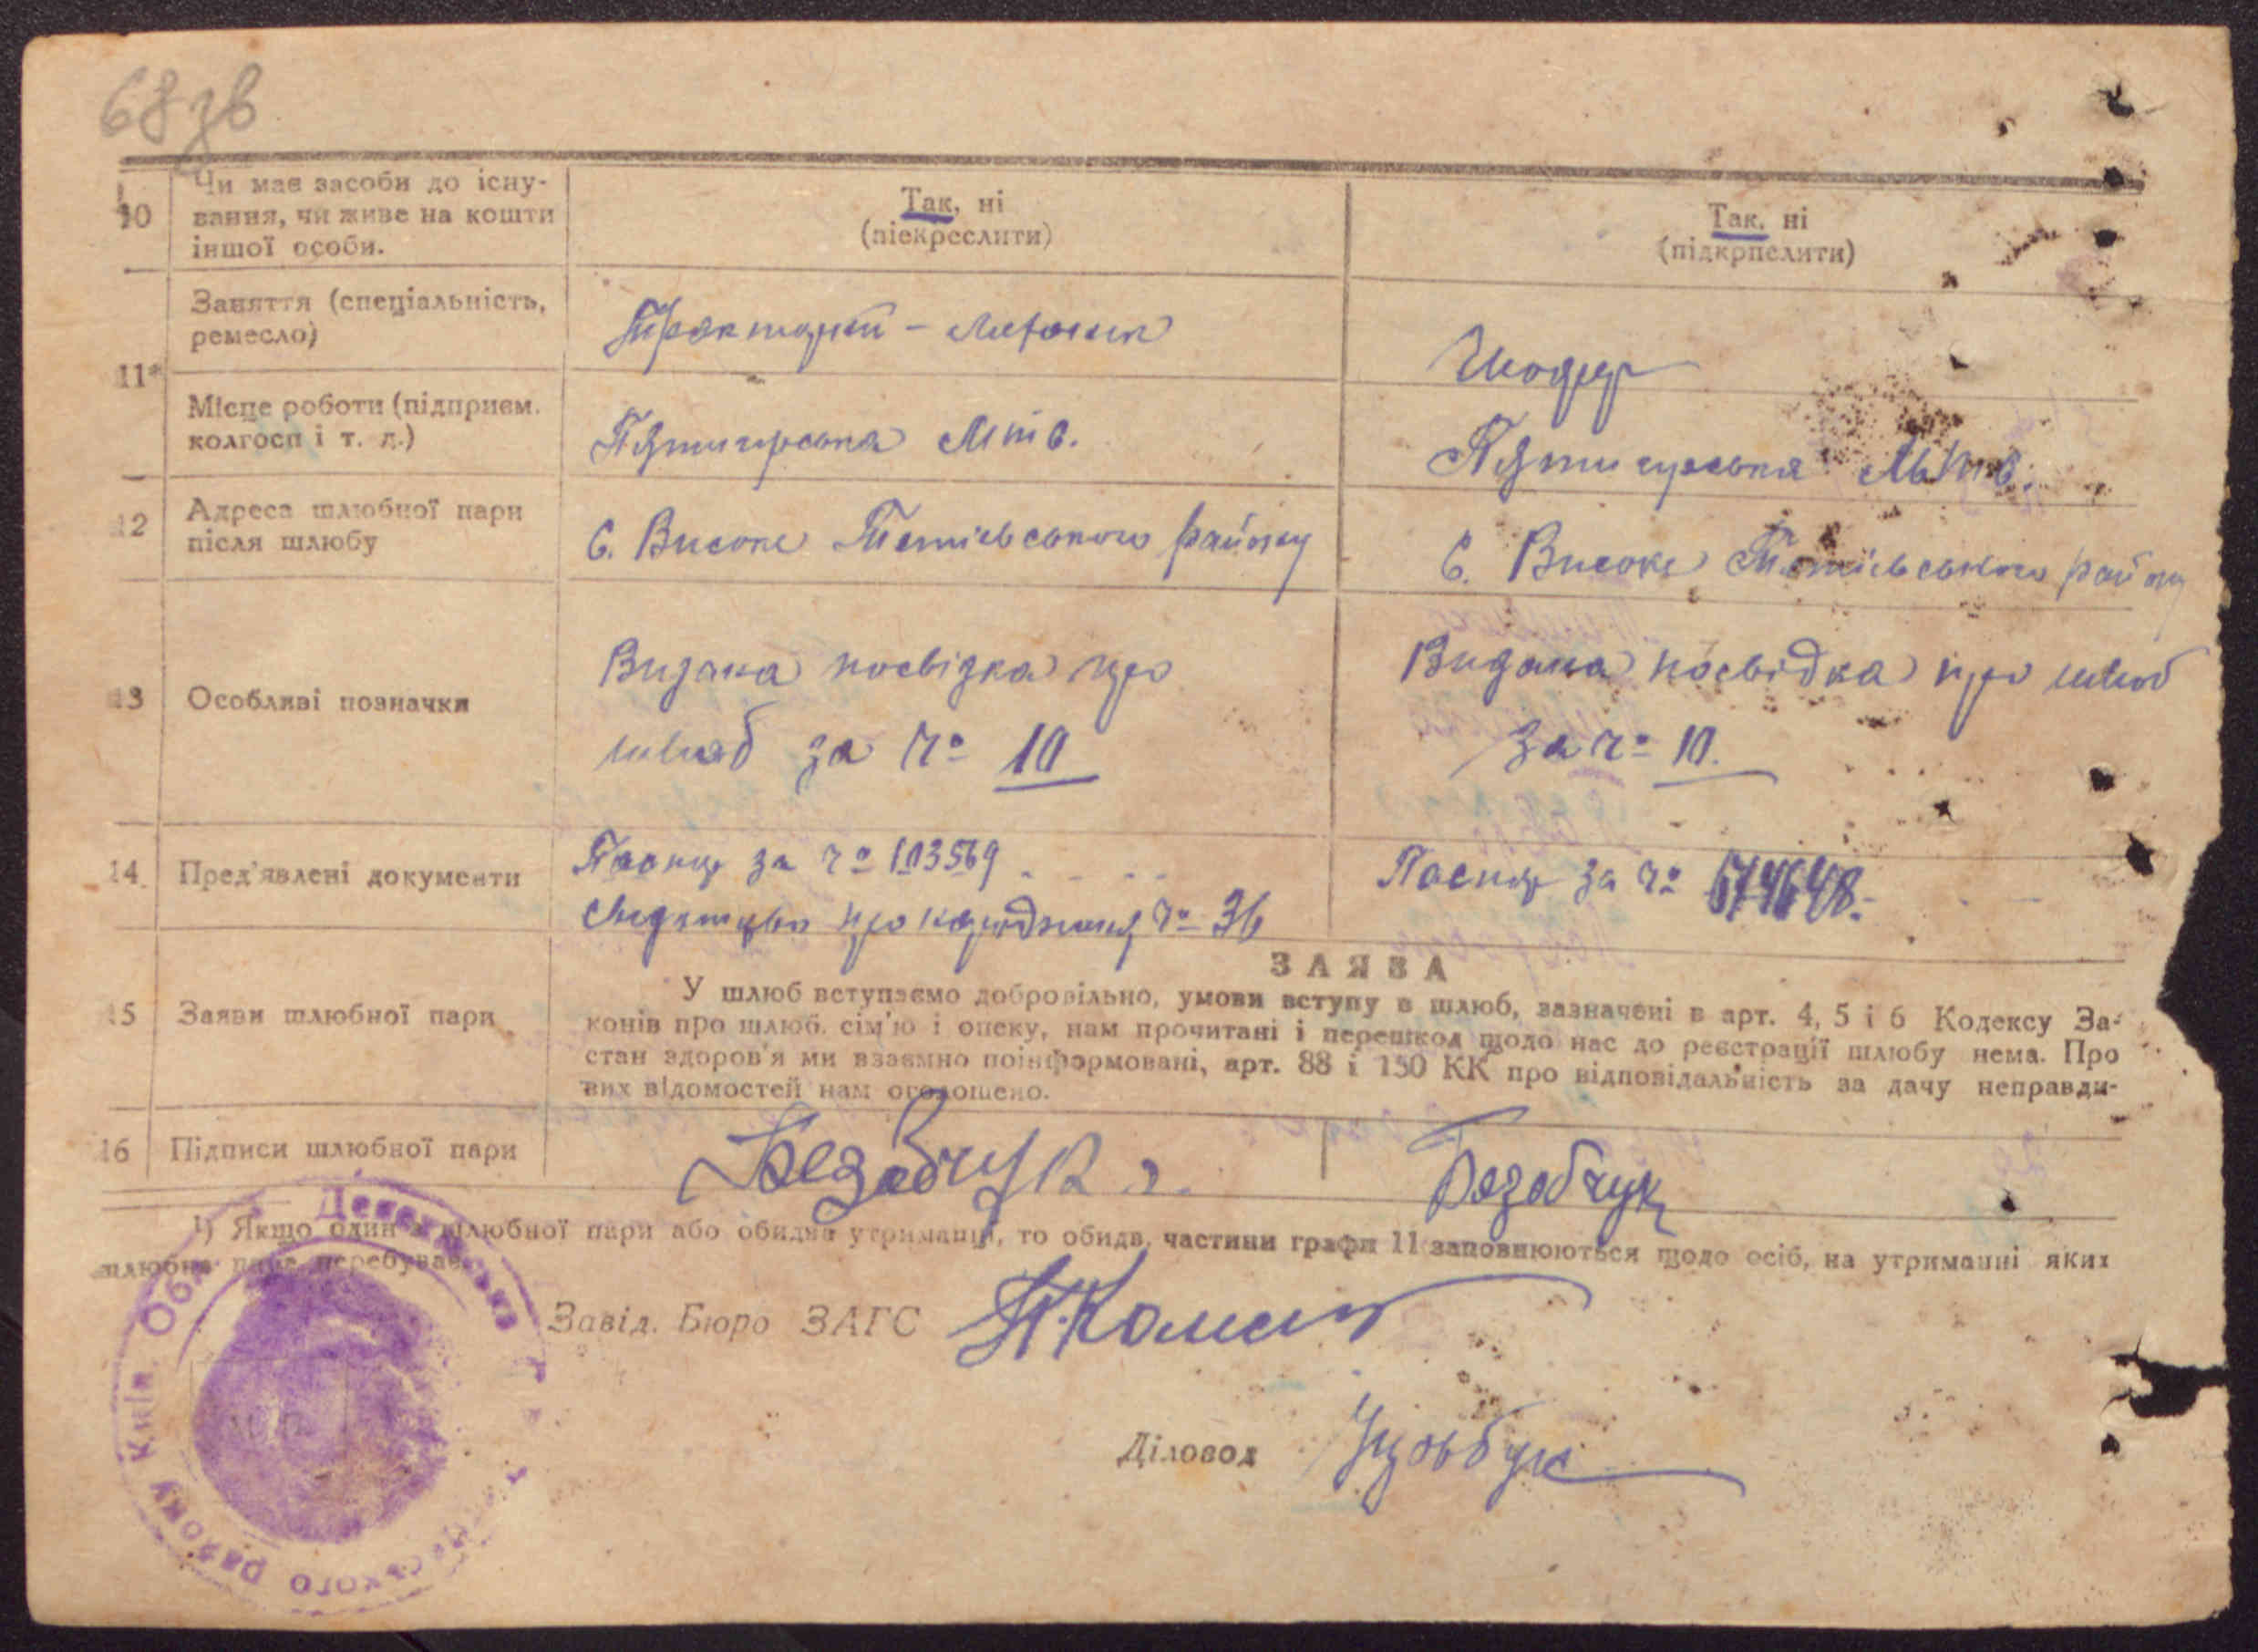 68 зв
10 Чи має засоби до існу-
вання, чи живе на кошти
іншої особи.
Так, ні
(піекреслити)
Так, ні
(підкрпслити)
11
Заняття (спеціальність,
ремесло)
Шофер
Місце роботи (підприєм.
колгосп і т. д.)
Пятигирська Мтс.
Пятигурська Мтс.
12 Адреса шлюбної пари
після шлюбу
С. Високе Тетіївського району
С. Високе Тетіївського району
13 Особливі позначки
Видана посвідка про
шлюб за № 10
Видана посвідка про шлюб
за № 10.
14 Пред'явлені документи
Паспор за № 103569
про народження № 36
Паспор за №
15 Заяви шлюбної пари
ЗАЯВА
У шлюб вступаємо добровільно, умови вступу в шлюб, зазначені в арт. 4, 5 і 6 Кодексу За-
конів про шлюб, сім'ю і опеку, нам прочитані і перешкод щодо нас до реєстрації шлюбу нема. Про
стан здоров'я ми взаємно поінформовані, арт. 88 і 150 КК про відповідальність за дачу неправди-
вих відомостей нам оголошено.
16 Підписи шлюбної пари
Безабчук
Безабчук
¹) Якщо один з шлюбної пари або обидва утриманці, то обидв. частини графи 11 заповнюються щодо осіб, на утриманні яких
шлюбна пара перебуває.
Завід. Бюро ЗАГС
Діловод
М. П.
ського району Київ. Обл.